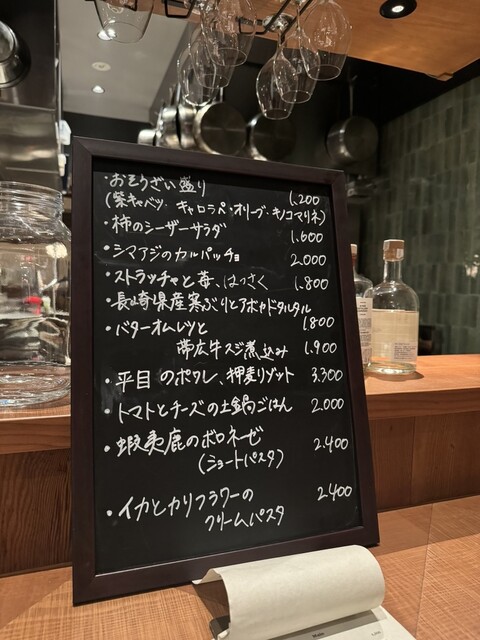 ・おそうざい盛り
(紫キャベツ・キャロラペ・オリーブ・キノコマリネ) 1.200
・柿のシーザーサラダ 1.600
・シマアジのカルパッチョ 2.000
・ストラッチャと苺、はっさく 1.800
・長崎県産寒ぶりとアボカドタルタル
1800
・バターオムレツと
帯広牛スジ煮込み 1.900
・平目のポワレ、押麦リゾット 3.300
・トマトとチーズの土鍋ごはん 2.000
・蝦夷鹿のボロネーゼ 2.400
(ショートパスタ)
・イカとカリフラワーの 2400
クリームパスタ